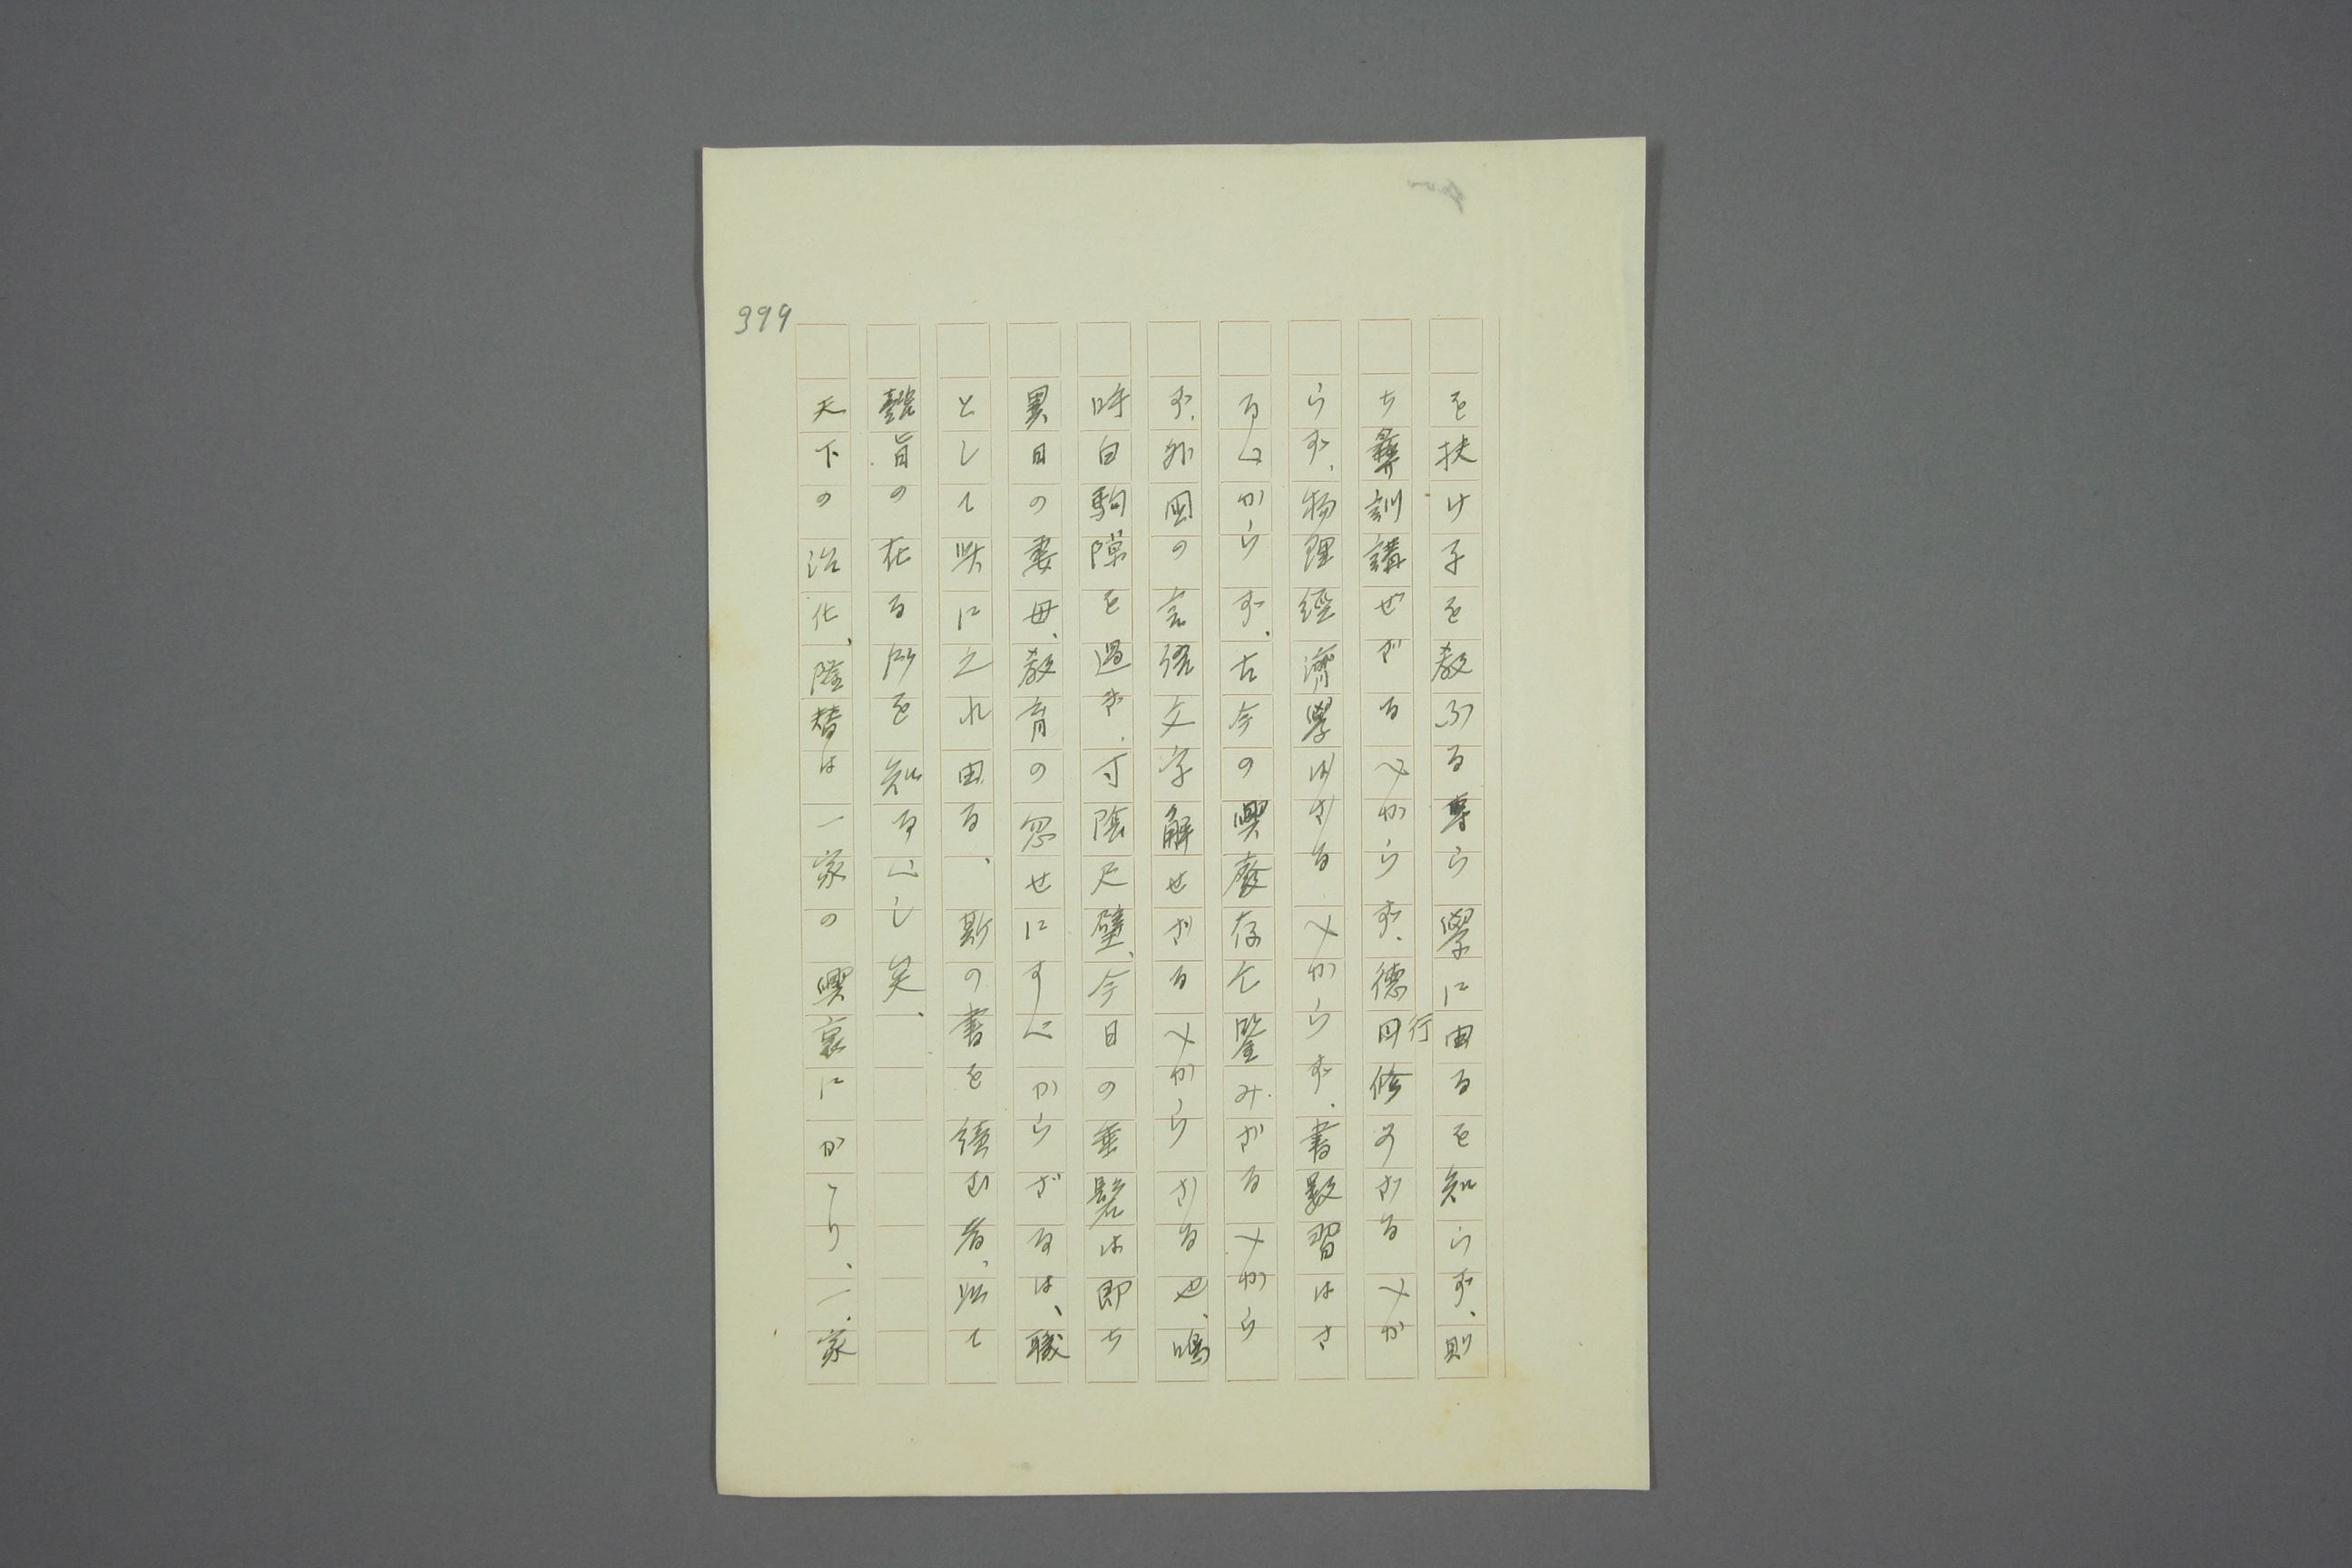 を扶け子を教ふる專ら學に由るを知らず、則
ち彝訓講ぜざるべからず、德行修めざるべか
らず、物理經濟學ばざるべからず、書數習はざ
るべからず、古今の興廢存亡鑒みざるべから
ず、外国の言語文字解せざるべからざる也、嗚
呼白駒隙を過ぎ、寸陰尺璧、今日の垂髫は即ち
異日の妻母、敎育の忽せにすべからざるは、職
として此に之れ由る、斯の書を讀む者、以て
懿旨の在る所を知るべし矣、
天下の治化、隆替は一家の興衰にかゝり、一家
399